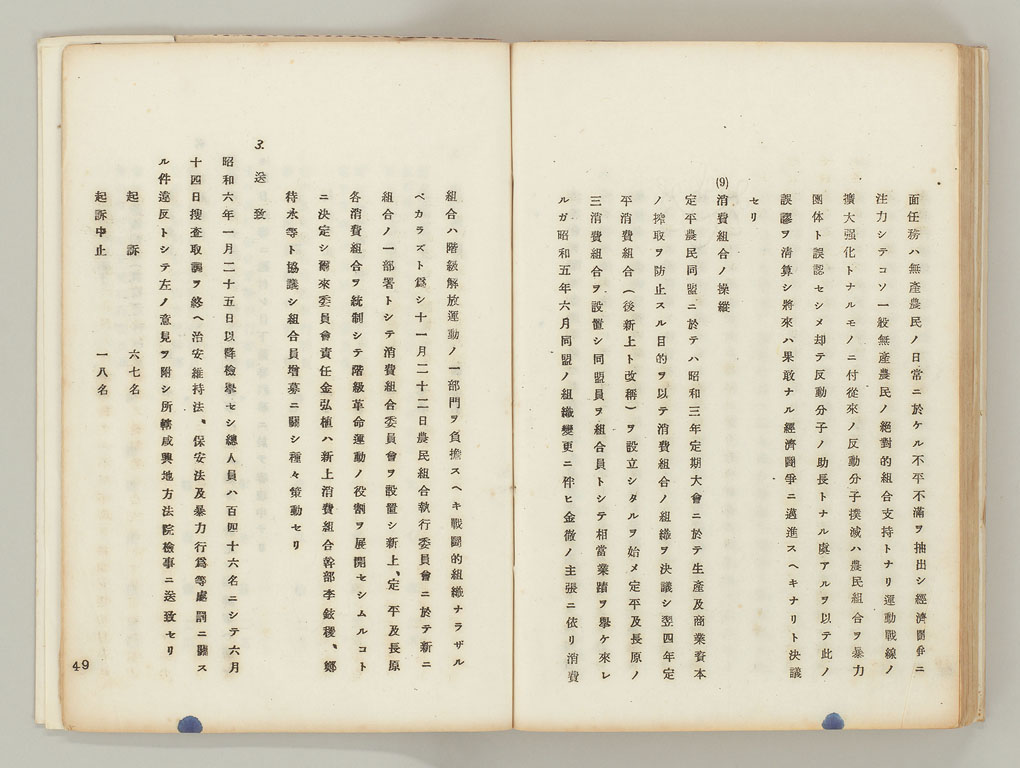 面任務ハ無產農民ノ日常ニ於ケル不平不滿ヲ抽出シ經濟鬪爭ニ
注力シテコソ一般無產農民ノ絕對的組合支持トナリ運動戰線ノ
擴大强化トナルモノニ付從來ノ反動分子撲滅ハ農民組合ヲ暴力
團体ト誤認セシメ却テ反動分子ノ助長トナル處アルヲ以テ此ノ
誤謬ヲ淸算シ將來ハ果敢ナル經濟鬪爭ニ邁進スヘキナリト決議
セリ
(9)消費組合ノ操縱
定平農民同盟ニ於テハ昭和三年定期大會ニ於テ生產及商業資本
ノ搾取ヲ防止スル目的ヲ以テ消費組合ノ組織ヲ決議シ翌四年定
平消費組合(後新上ト改稱)ヲ設立シタルヲ始メ定平及長原ノ
三消費組合ヲ設置シ同盟員ヲ組合員トシテ相當業蹟ヲ擧ケ來レ
ルガ昭和五年六月同盟ノ組織變更ニ伴ヒ金徹ノ主張ニ依リ消費
組合ハ階級解放運動ノ一部門ヲ負擔スヘキ戰鬪的組織ナラザル
ベカラズト爲シ十一月二十二日農民組合執行委員會ニ於テ新ニ
組合ノ一部署トシテ消費組合委員會ヲ設置シ新上、定平及長原
各消費組合ヲ統制シテ階級革命運動ノ役割ヲ展開セシムルコト
ニ決定シ爾來委員會責任金弘植ハ新上消費組合幹部李鉉稷、鄭
待永等ト協議シ組合員增募ニ關シ種々策動セリ
3.送致
昭和六年一月二十五日以降檢擧セシ總人員ハ百四十六名ニシテ六月
十四日搜査取調ヲ終ヘ治安維持法、保安法及暴力行爲等處罰ニ關ス
ル件違反トシテ左ノ意見ヲ附シ所轄咸興地方法院檢事ニ送致セリ
起訴 六七名
起訴中止 一八名
49